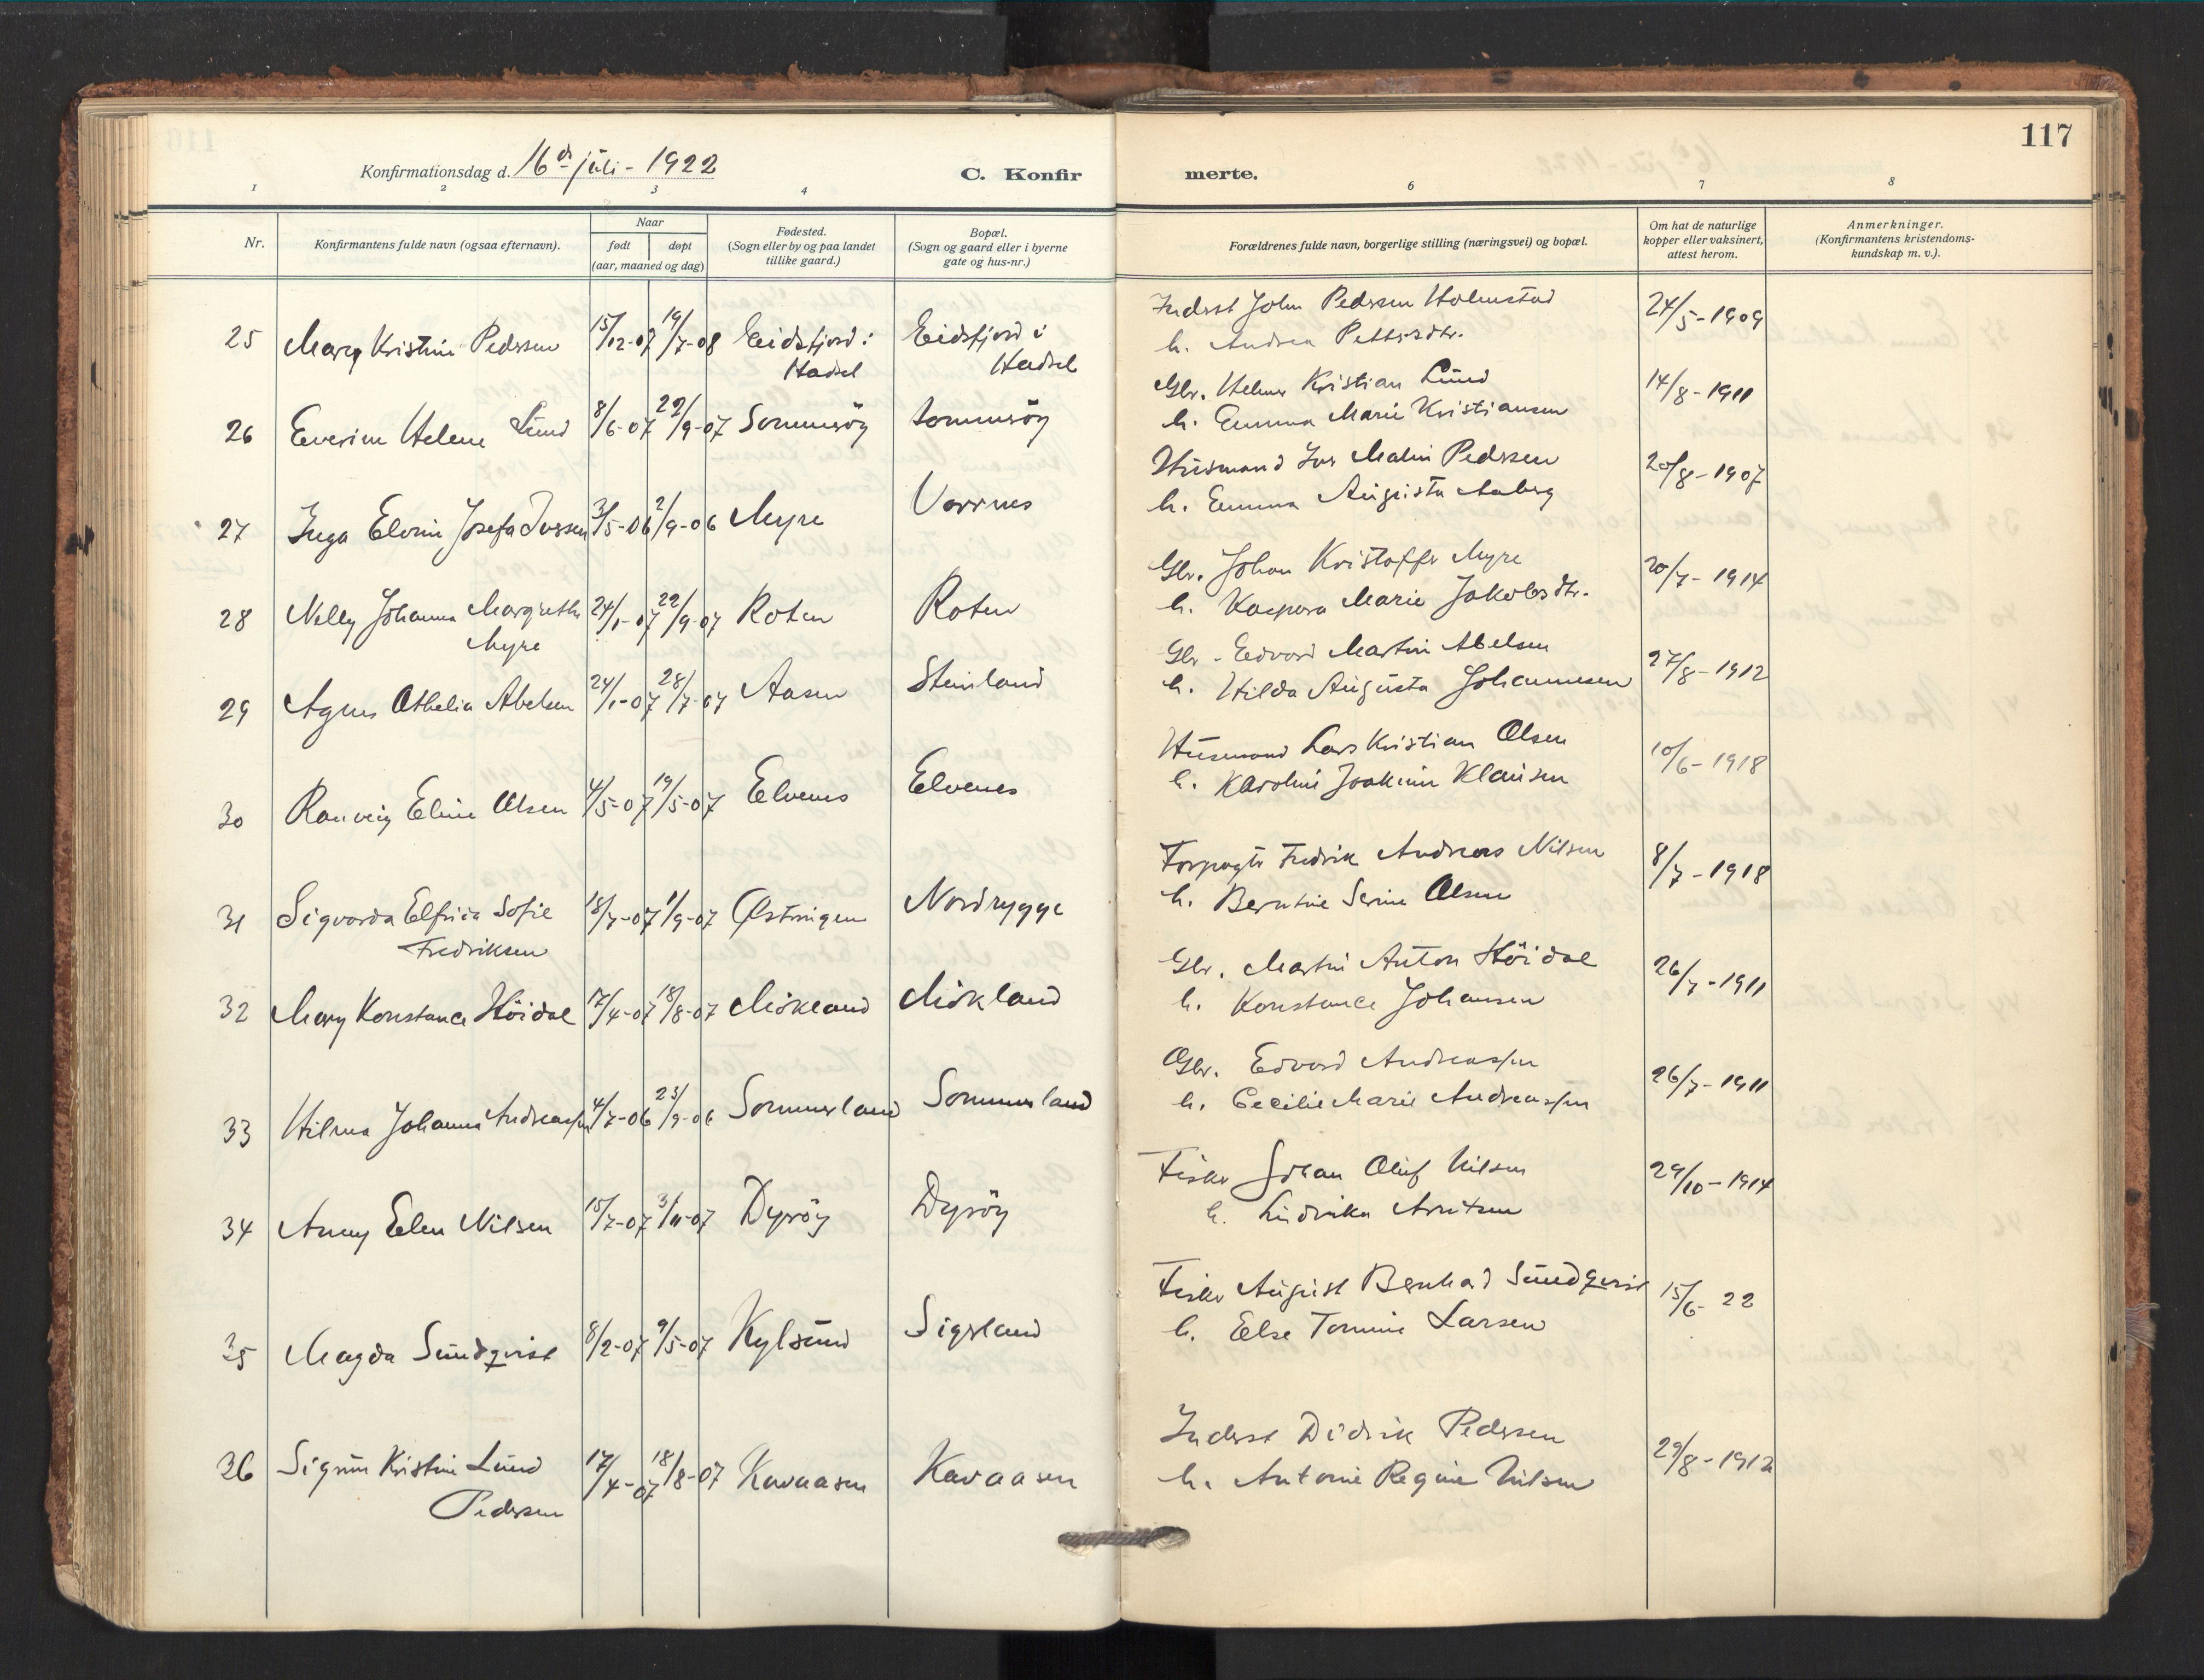 117
Konfirmationsdag d. 16de juli - 1922
C. Konfir
merte.
1 2 3 4 6 7 8
Nr.
Konfirmantens fulde navn (ogsaa efternavn).
Naar
født døpt
(aar, maaned og dag)
Fødested.
(Sogn eller by og paa landet
tillike gaard.)
Bopæl.
(Sogn og gaard eller i byerne
gate og hus-nr.)
Forældrenes fulde navn, borgerlige stilling (næringsvei) og bopæl.
Om hat de naturlige
kopper eller vaksinert,
attest herom.
Anmerkninger.
(Konfirmantens kristendoms-
kundskap m. v.).
Inderst John Pedersen Holmstad
25 Mary Kristine Pedersen 15/12-07 19/7-08 Eidsfjord i Eidsfjord i 24/5-1909
Hadsel Hadsel
h. Andrea Pettersdtr.
Gbr. Helmer Kristian Lund
26 Everine Helene Lund 8/6-07 22/9-07 Sommerøy Sommerøy 14/8-1911
h. Emma Marie Kristiansen
Husmand Ivar Malin Pedersen
27 Inga Elvine Josefa Iversen 3/5-06 2/9-06 Myre Vorrnes 20/8-1907
h. Emma Augusta Aaberg
Gbr. Johan Kristoffer Myre
28 Nelly Johanna Margrethe 24/1-07 22/9-07 Roten Roten 20/7-1914
Myre
h. Kaspara Marie Jakobsdtr.
Gbr. Edvard Martin Abelsen
29 Agnes Othelia Abelsen 24/1-07 28/7-07 Aasen Steinland 27/8-1912
h. Hilda Augusta Johannesen
Husmand Lars Kristian Olsen
30 Ranveig Eline Olsen 4/5-07 19/5-07 Elvenes Elvenes 10/6-1918
h. Karoline Joakime Klausen
Forpagter Fredrik Andreas Nilsen
31 Sigvarda Elfrida Sofie 18/7-07 1/9-07 Østringen Nordrygge 8/7-1918
Fredriksen
h. Berntine Serine Olsen
Gbr. Martin Anton Høidal
32 Mary Konstance Høidal 17/4-07 18/8-07 Miskland Miskland 26/7-1911
h. Konstance Johansen
Gbr. Edvard Andreassen
33 Hilma Johanna Andreassen 4/7-06 23/9-06 Sommerland Sommerland 26/7-1911
h. Cecilie Marie Andreassen
Fisker Johan Oluf Nilsen
34 Anny Elen Nilsen 15/7-07 3/11-07 Dyrøy Dyrøy 29/10-1914
h. Ludvika Arntsen
Fisker August Bernhard Sundqvist
35 Magda Sundqvist 8/2-07 9/5-07 Kylsund Sigerland 15/6-22
h. Else Tomine Larsen
Inderst Didrik Pedersen
36 Sigrun Kristine Lund 17/4-07 18/8-07 Kavaasen Kavaasen 29/8-1912
Pedersen
h. Antonie Regine Nilsen